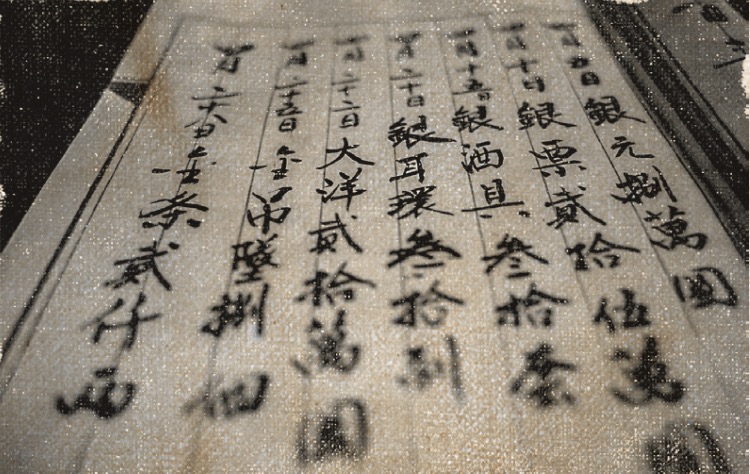 一月五日銀元捌萬圓
一月十日銀票貳拾伍萬圓
一月十五日銀酒具叁拾套
一月二十日銀耳環叁拾副
一月二十二日大洋貳拾萬圓
一月二十五日金吊墜捌個
一月二十六日金条貳仟両